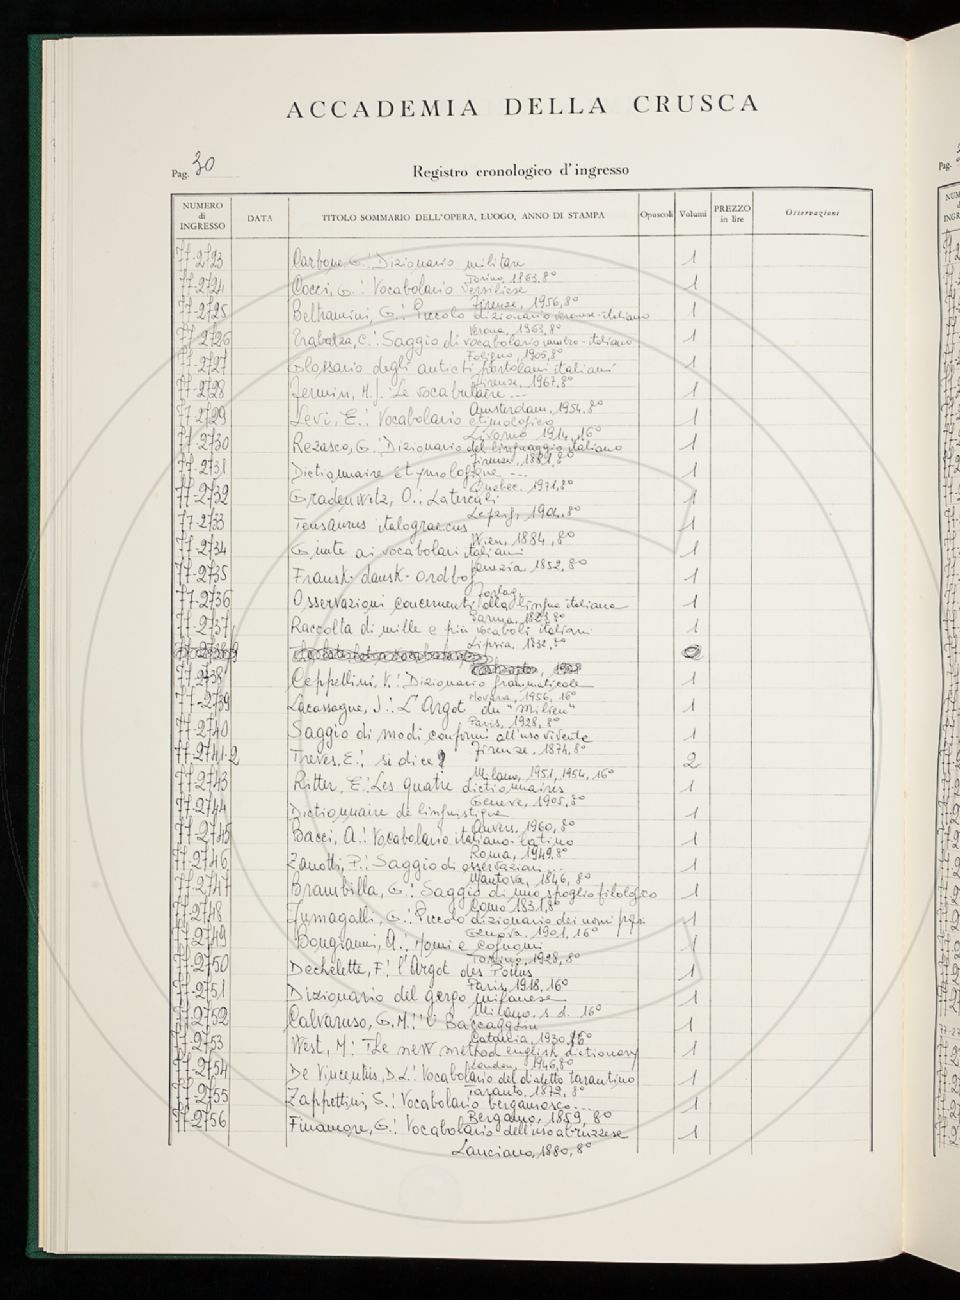 ACCADEMIA DELLA CRUSCA
Pag. 30
Registro cronologico d'ingresso
NUMERO di INGRESSO DATA TITOLO SOMMARIO DELL'OPERA, LUOGO, ANNO DI STAMPA Opuscoli Volumi PREZZO in lire Osservazioni
77-2723 Carbone, G.: Dizionario militare 1
Torino, 1863, 8°
77-2724 Cocci, G.: Vocabolario versiliese 1
Firenze, 1956, 8°
77-2725 Beltramini, G.: Piccolo dizionario veronese-italiano 1
Verona, 1963, 8°
77-2726 Trabalza, C.: Saggio di vocabolario umbro-italiano 1
Foligno, 1905, 8°
77-2727 Glossario degli antichi portolani italiani 1
Firenze, 1967, 8°
77-2728 H.J. Le vocabulaire ... 1
Amsterdam, 1954, 8°
77-2729 Levi, E.: Vocabolario etimologico 1
Livorno 1914, 16°
77-2730 Rezasco, G.: Dizionario del linguaggio italiano 1
Firenze, 1881, 8°
77-2731 Dictionnaire étymologique ... 1
Quebec, 1971, 8°
77-2732 Gradenwitz, O.: Laterculi 1
Leipzig, 1904, 8°
77-2733 Tensaurus italograecus 1
Wien, 1884, 8°
77-2734 Giunte ai vocabolari italiani 1
Venezia 1852, 8°
77-2735 Fransk-dansk-ordbog 1
77-2736 Osservazioni concernenti alla lingua italiana 1
Parma, 1823, 8°
77-2737 Raccolta di mille e più vocaboli italiani 1
Lipsia, 1832, 8°
77-2738 Ceppellini, V.: Dizionario grammaticale 1
Novara, 1956, 16°
77-2739 Lacassagne, J.: L'Argot du "Milieu" 1
Paris, 1928, 8°
77-2740 Saggio di modi conformi all'uso vivente 1
Firenze, 1874, 8°
77-2741-2 Treves, E.: si dice? 2
Milano, 1951, 1954, 16°
77-2743 Ritter, E.: Les quatre dictionnaires 1
Geneve, 1905, 8°
77-2744 Dictionnaire de linguistique 1
Anvers, 1960, 8°
77-2745 Bacci, A.: Vocabolario italiano-latino 1
Roma, 1949, 8°
77-2746 Zanotti, P.: Saggio di osservazioni ... 1
Mantova, 1846, 8°
77-2747 Brambilla, G.: Saggio di uno spoglio filologico 1
Como 1831, 8°
77-2748 Fumagalli, G.: Piccolo dizionario dei nomi propri 1
Genova, 1901, 16°
77-2749 Bongioanni, A.: Nomi e cognomi 1
Torino, 1928, 8°
77-2750 Dechelette, F.: l'Argot des Poilus 1
Paris, 1918, 16°
77-2751 Dizionario del gergo milanese 1
Milano, s.d. 16°
77-2752 Calvaruso, G.M.: U Baccagghiu 1
Catania, 1930, 16°
77-2753 West, M.: The new method english dictionary 1
London, 1946, 8°
77-2754 De Vincentiis, D.L.: Vocabolario del dialetto tarantino 1
Taranto, 1872, 8°
77-2755 Zappettini, S.: Vocabolario bergamasco ... 1
Bergamo, 1859, 8°
77-2756 Finamore, G.: Vocabolario dell'uso abruzzese 1
Lanciano, 1880, 8°